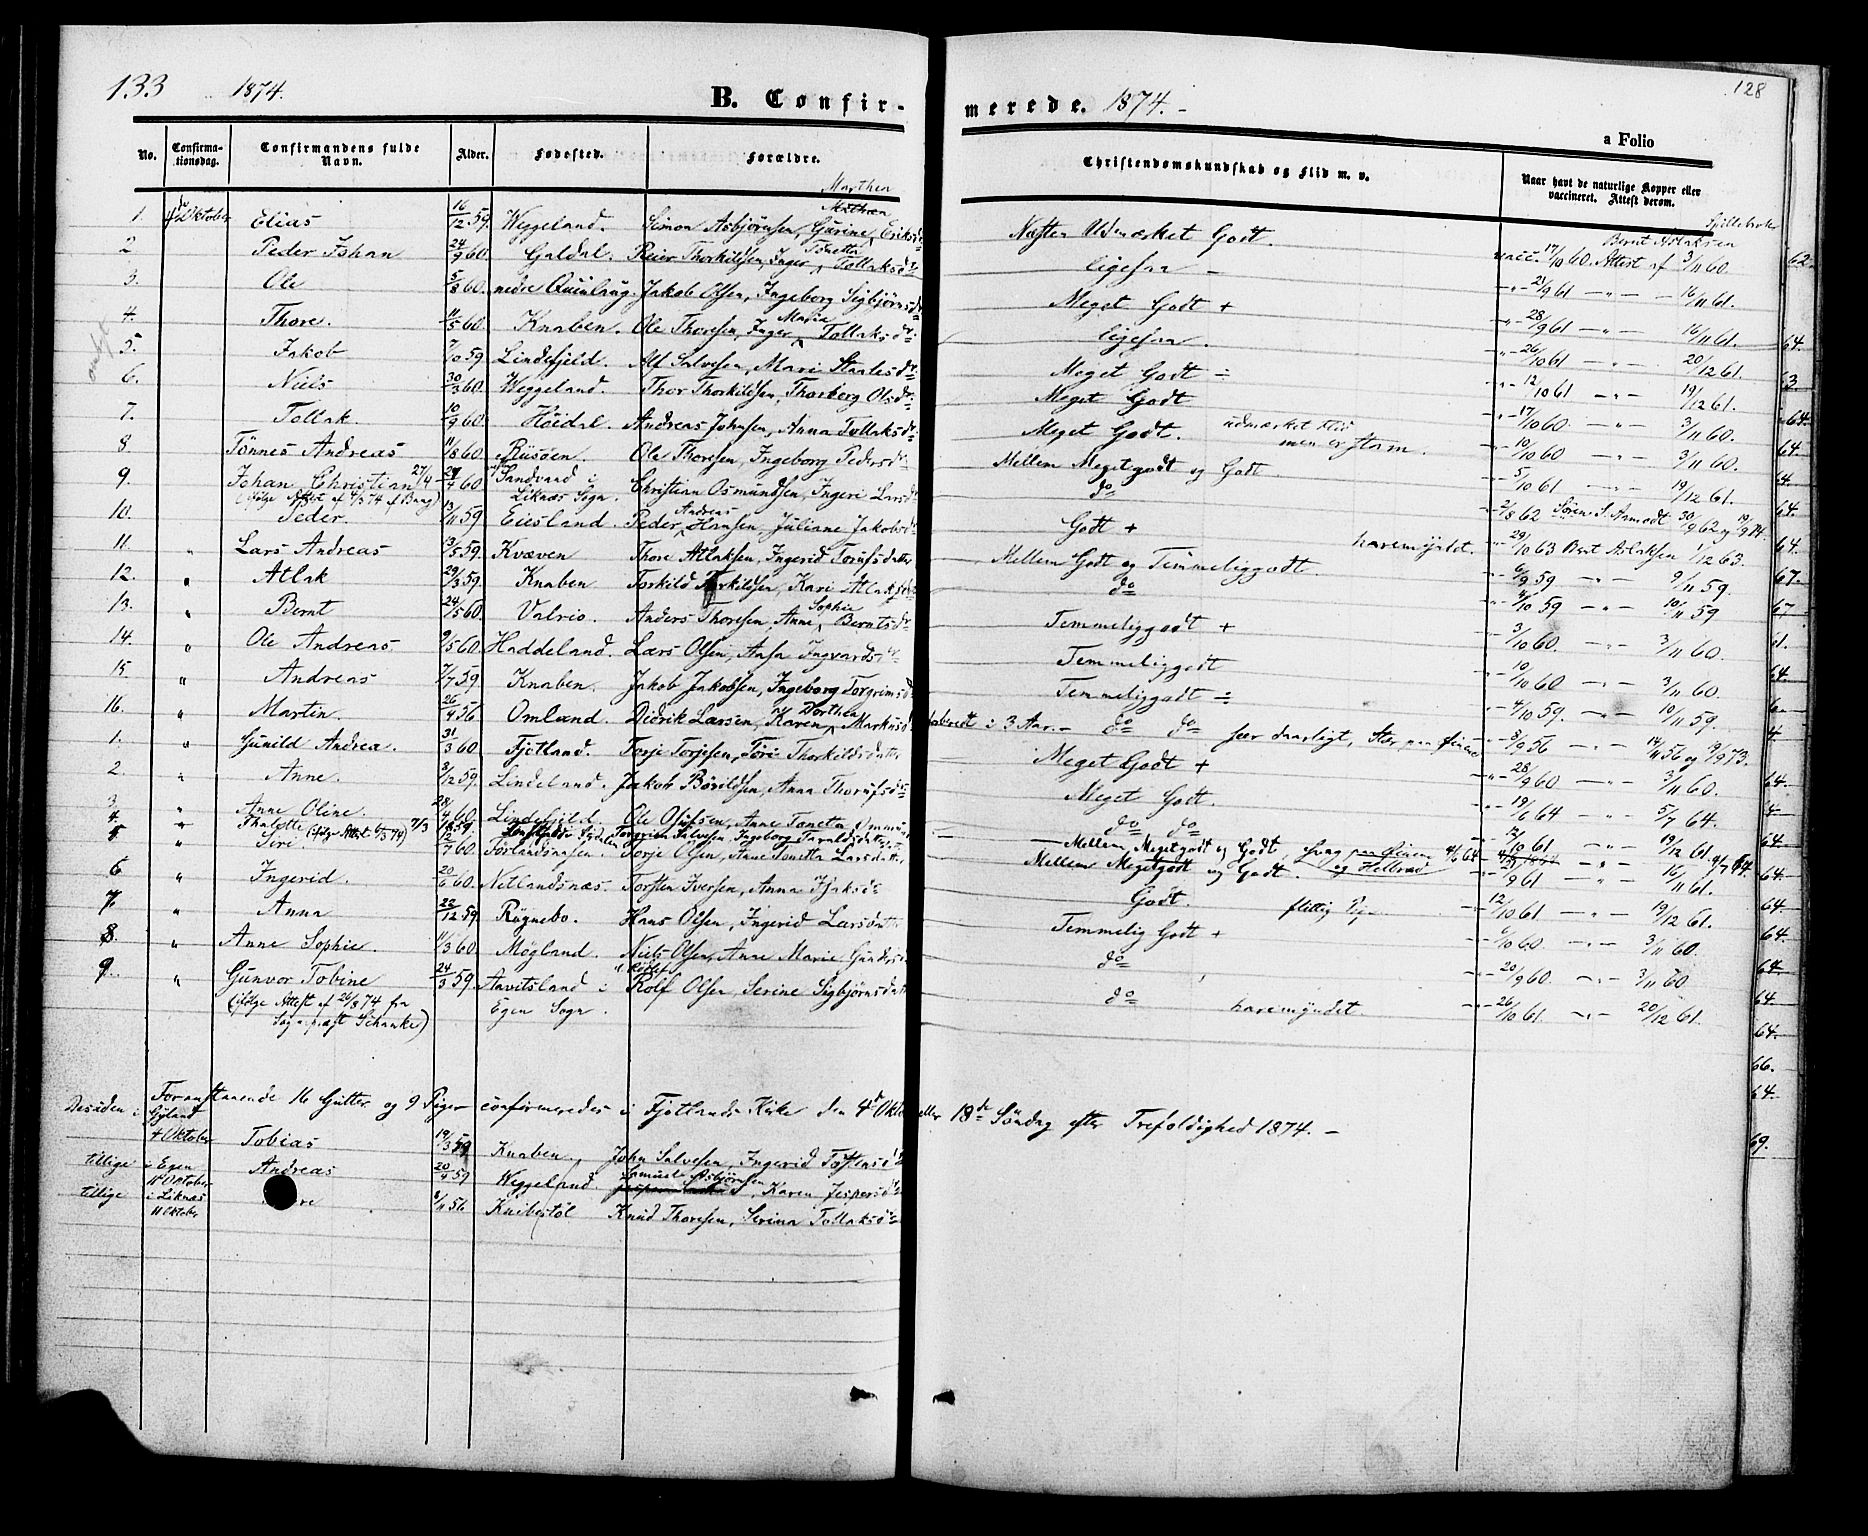 133 1874. B. Confir- merede. 1874. - 128
a Folio
No. Confirma-tionsdag. Confirmandens fulde Navn. Alder. Fødested. Forældre. Christendomskundskab og Flid m. v. Naar havt de naturlige Kopper eller vaccineret. Attest derom.
Marthea
1. Oktober Elias 16/12 59. Weggeland. Simon Asbjørnsen, Gurine Eriksd. Næsten Udmærket Godt
2. Peder Johan 24/9 60. Galdal. Reier Thorkildsen, Inger Tonette Tollaksdt. ligesaa - vacc. 17/10 60. Attest af Bernt Aslaksen 3/11 60.
3. Ole 5/8 60. nedre Quinlaug. Jakob Olsen, Ingeborg Sigbjørnsd. Meget Godt + 21/9 61 16/11 61.
4. Thore. 11/5 60. Knaben. Ole Thoresen, Inger Marie Tollaksdt. ligesaa. 28/9 61 16/11 61.
5. Jakob 7/10 59. Lindefjeld. Alf Salvesen, Mari Staalesdt. Meget Godt ÷ 26/10 61 20/12 61.
6. Niels 30/3 60. Weggeland. Thor Thorkildsen, Thorberg Olsdt. Meget Godt 12/10 61 19/12 61.
7. Tollak. 10/9 60. Høidal. Andreas Johnsen, Anna Tollaksdt. Meget Godt. udmærket Flid men er stam. 17/10 60. 3/11 60.
8. Tönnes Andreas 11/8 60. Risøen. Ole Thoresen, Ingeborg Pedersdt. Mellem Megetgodt og Godt 10/10 60 3/11 60.
9. Johan Christian 27/4 60 Sandvand i Liknæs Sogn. Christian Osmundsen, Ingeri Larsd. do 5/10 61 19/12 61.
(ifølge Attest af 4/3 74 af Bang)
10. Peder. 13/11 59. Eiesland. Peder Andreas Hansen, Juliane Jakobsd. Godt + haremyndet. 2/8 62 Sören S. Aamodt 30/9 62 og 19/9 74.
11. " Lars Andreas 13/5 59. Kvæven Thore Atlaksen, Ingerid Torufsdatter Mellem Godt og Temmeliggodt. 29/10 63 Bernt Aslaksen 1/12 63.
12. " Atlak 29/3 59. Knaben Torkild Torkildsen, Kari Atlaksdt. do 6/9 59 9/11 59.
13. " Bernt 24/5 60. Valrio. Anders Thoresen, Anne Sophie Berntsdt. Temmeliggodt + /10 59 10/11 59
14. " Ole Andreas 9/5 60. Haddeland. Lars Olsen, Aasa Ingvardsdt. Temmeliggodt 3/10 60. 3/11 60.
15. " Andreas 7/7 59. Knaben. Jakob Jakobsen, Ingeborg Torgrimsd. Temmeliggodt ÷ 10/10 60 3/11 60.
16. " Martin. 26/4 56. Omland. Didrik Larsen, Karen Dorthea Markusd. i 3 Aar. - do do før daarligt, Stær paa 4/10 59. 10/11 59.
1. " Gunild Andrea. 31/3 60. Fjotland. Torje Torjesen, Töri Thorkildsdatter Meget Godt + 8/9 56 14/11 56 og 19/9 73.
2. " Anne. 3/12 59. Lindeland. Jakob Bövildsen, Anna Thorufsd. Meget Godt. 28/9 60 3/11 60.
3. " Anne Oline. 28/4 60. Lindefjeld. Ole Olufsen, Anne Tonetta do do 19/6 64 5/7 64.
4. " Thalette (ifølge Attest 6/3 74) 7/3 59. Torgrim Salvesen, Ingeborg Tarvaldsdatter Mellem Megetgodt og Godt Svag paa Öinene og Helbred 12/10 61 19/12 61.
5. " Siri 12/7 60. Förlandsnæsen. Torje Olsen, Anne Tonetta Larsdatter Mellem Megetgodt og Godt. /9 61 16/11 61.
6. " Ingerid. 20/6 60. Netlandsnæs. Torsten Iversen, Anna Isaksd. Godt. flittig Pige 12/10 61. 19/12 61.
7. " Anna 22/12 59. Røgnebo. Hans Olsen, Ingerid Larsdatter Temmelig Godt + /10 60. 3/11 60.
8. " Anne Sophie 11/3 60. Mögland. Niels Olsen, Anne Marie Gundersd. do 20/9 60. 3/11 60
9. " Gunvor Tobine 24/3 59. Aavitsland i Egen Sogn. Rolf Olsen, Serine Sigbjørnsdatter do haremyndet. 26/10 61. 20/12 61.
(ifølge Attest af 26/8 74 fra Sognepræst Schanke)
Foranstaaende 16 Gutter og 9 Piger confirmeredes i Fjotlands Kirke den 4de Oktober eller 18de Söndag efter Trefoldighed 1874. -
Desuden i Gyland 4 Oktober Tobias 19/3 59 Knaben. John Salvesen, Ingerid Tostensd.
tillige i Egen 18 Oktober Andreas 20/4 59 Weggeland. Samuel Asbjørnsen, Karen Jespersd.
tillige i Liknæs 11 Oktober re 8/11 56 Knibestöl Knud Thoresen, Serina Tollaksd.